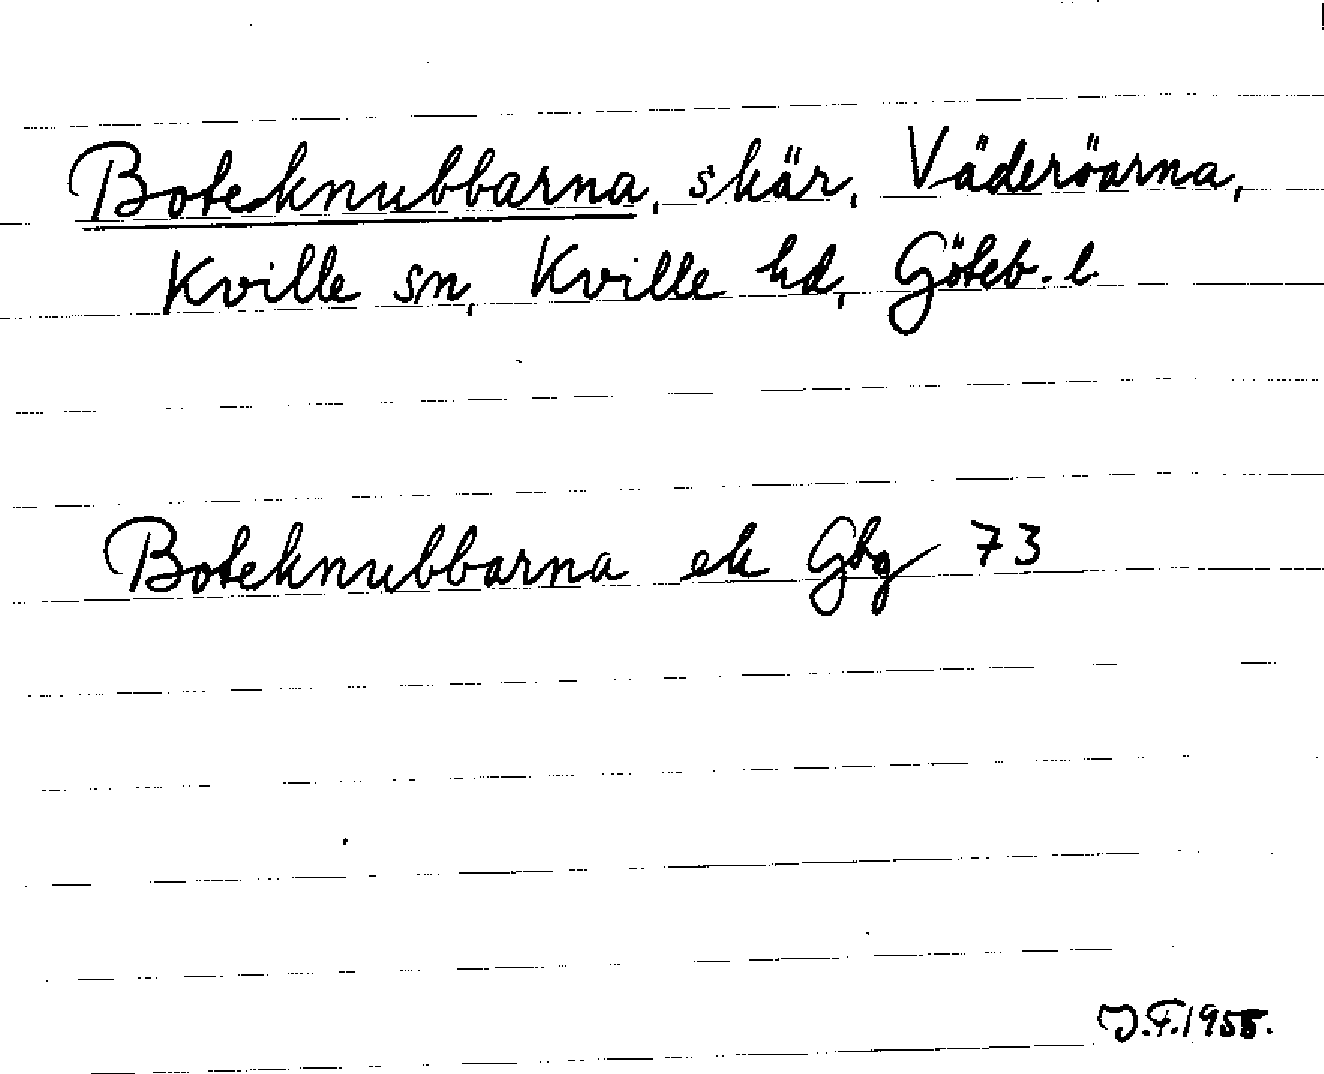 Boteknubbarna, skär, Väderöarna,
Kville sn, Kville hd, Göteb. l.
Boteknubbarna ek Gbg 73
J.F. 1955.